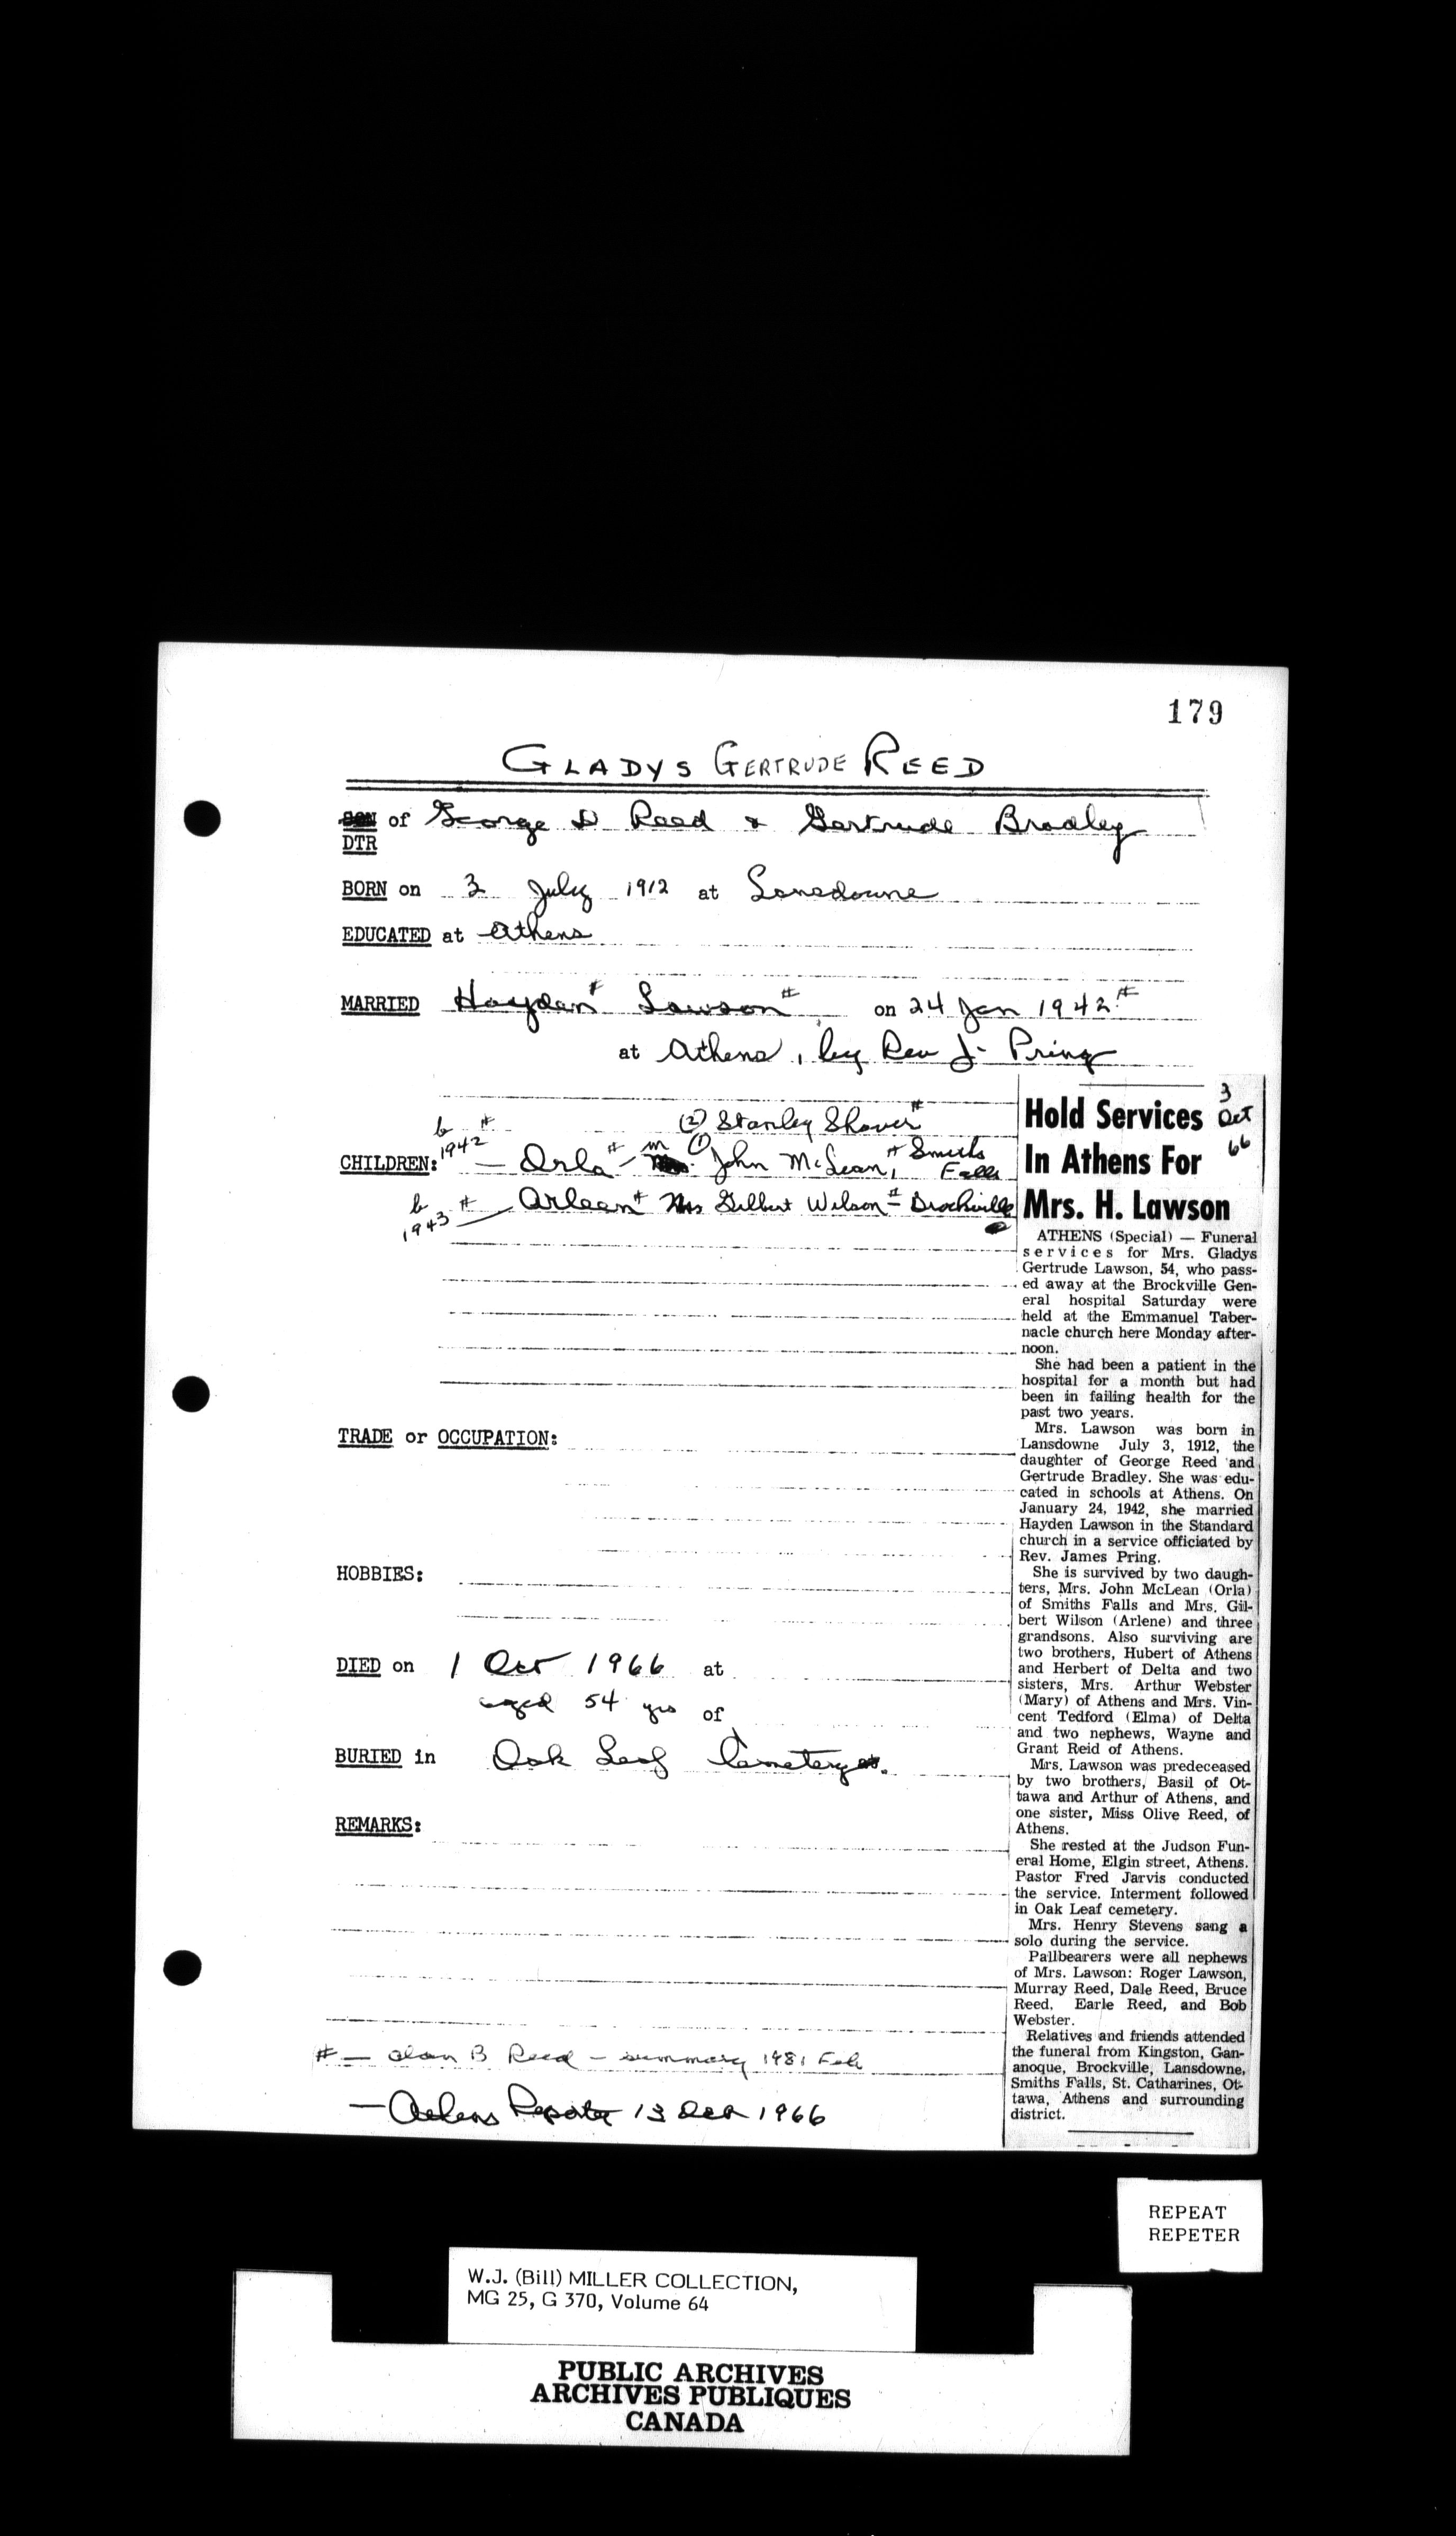 179
GLADYS GERTRUDE REED
SON of George D Reed & Gertrude Bradley
DTR
BORN on 3 July 1912 at Lansdowne
EDUCATED at Athens
MARRIED Hayden # Lawson # on 24 Jan 1942 #
at Athens, by Rev J. Pring
(2) Stanley Shover #
b #
1942
CHILDREN: — Orla # - m (1) John McLean, # Smiths
Falls
b #
1943 — Arleen # Mrs Gilbert Wilson # - Brockville
TRADE or OCCUPATION:
HOBBIES:
DIED on 1 Oct 1966 at
aged 54 yrs of
BURIED in Oak Leaf Cemetery
REMARKS:
# — Alan B Reed - summary 1981 Feb
— Athens Reporter 13 1966
3
Oct
66
Hold Services
In Athens For
Mrs. H. Lawson
ATHENS (Special) — Funeral
services for Mrs. Gladys
Gertrude Lawson, 54, who pass-
ed away at the Brockville Gen-
eral hospital Saturday were
held at the Emmanuel Taber-
nacle church here Monday after-
noon.
She had been a patient in the
hospital for a month but had
been in failing health for the
past two years.
Mrs. Lawson was born in
Lansdowne July 3, 1912, the
daughter of George Reed and
Gertrude Bradley. She was edu-
cated in schools at Athens. On
January 24, 1942, she married
Hayden Lawson in the Standard
church in a service officiated by
Rev. James Pring.
She is survived by two daugh-
ters, Mrs. John McLean (Orla)
of Smiths Falls and Mrs. Gil-
bert Wilson (Arlene) and three
grandsons. Also surviving are
two brothers, Hubert of Athens
and Herbert of Delta and two
sisters, Mrs. Arthur Webster
(Mary) of Athens and Mrs. Vin-
cent Tedford (Elma) of Delta
and two nephews, Wayne and
Grant Reid of Athens.
Mrs. Lawson was predeceased
by two brothers, Basil of Ot-
tawa and Arthur of Athens, and
one sister, Miss Olive Reed, of
Athens.
She rested at the Judson Fun-
eral Home, Elgin street, Athens.
Pastor Fred Jarvis conducted
the service. Interment followed
in Oak Leaf cemetery.
Mrs. Henry Stevens sang a
solo during the service.
Pallbearers were all nephews
of Mrs. Lawson: Roger Lawson,
Murray Reed, Dale Reed, Bruce
Reed, Earle Reed, and Bob
Webster.
Relatives and friends attended
the funeral from Kingston, Gan-
anoque, Brockville, Lansdowne,
Smiths Falls, St. Catharines, Ot-
tawa, Athens and surrounding
district.
REPEAT
REPETER
W.J. (Bill) MILLER COLLECTION,
MG 25, G 370, Volume 64
PUBLIC ARCHIVES
ARCHIVES PUBLIQUES
CANADA